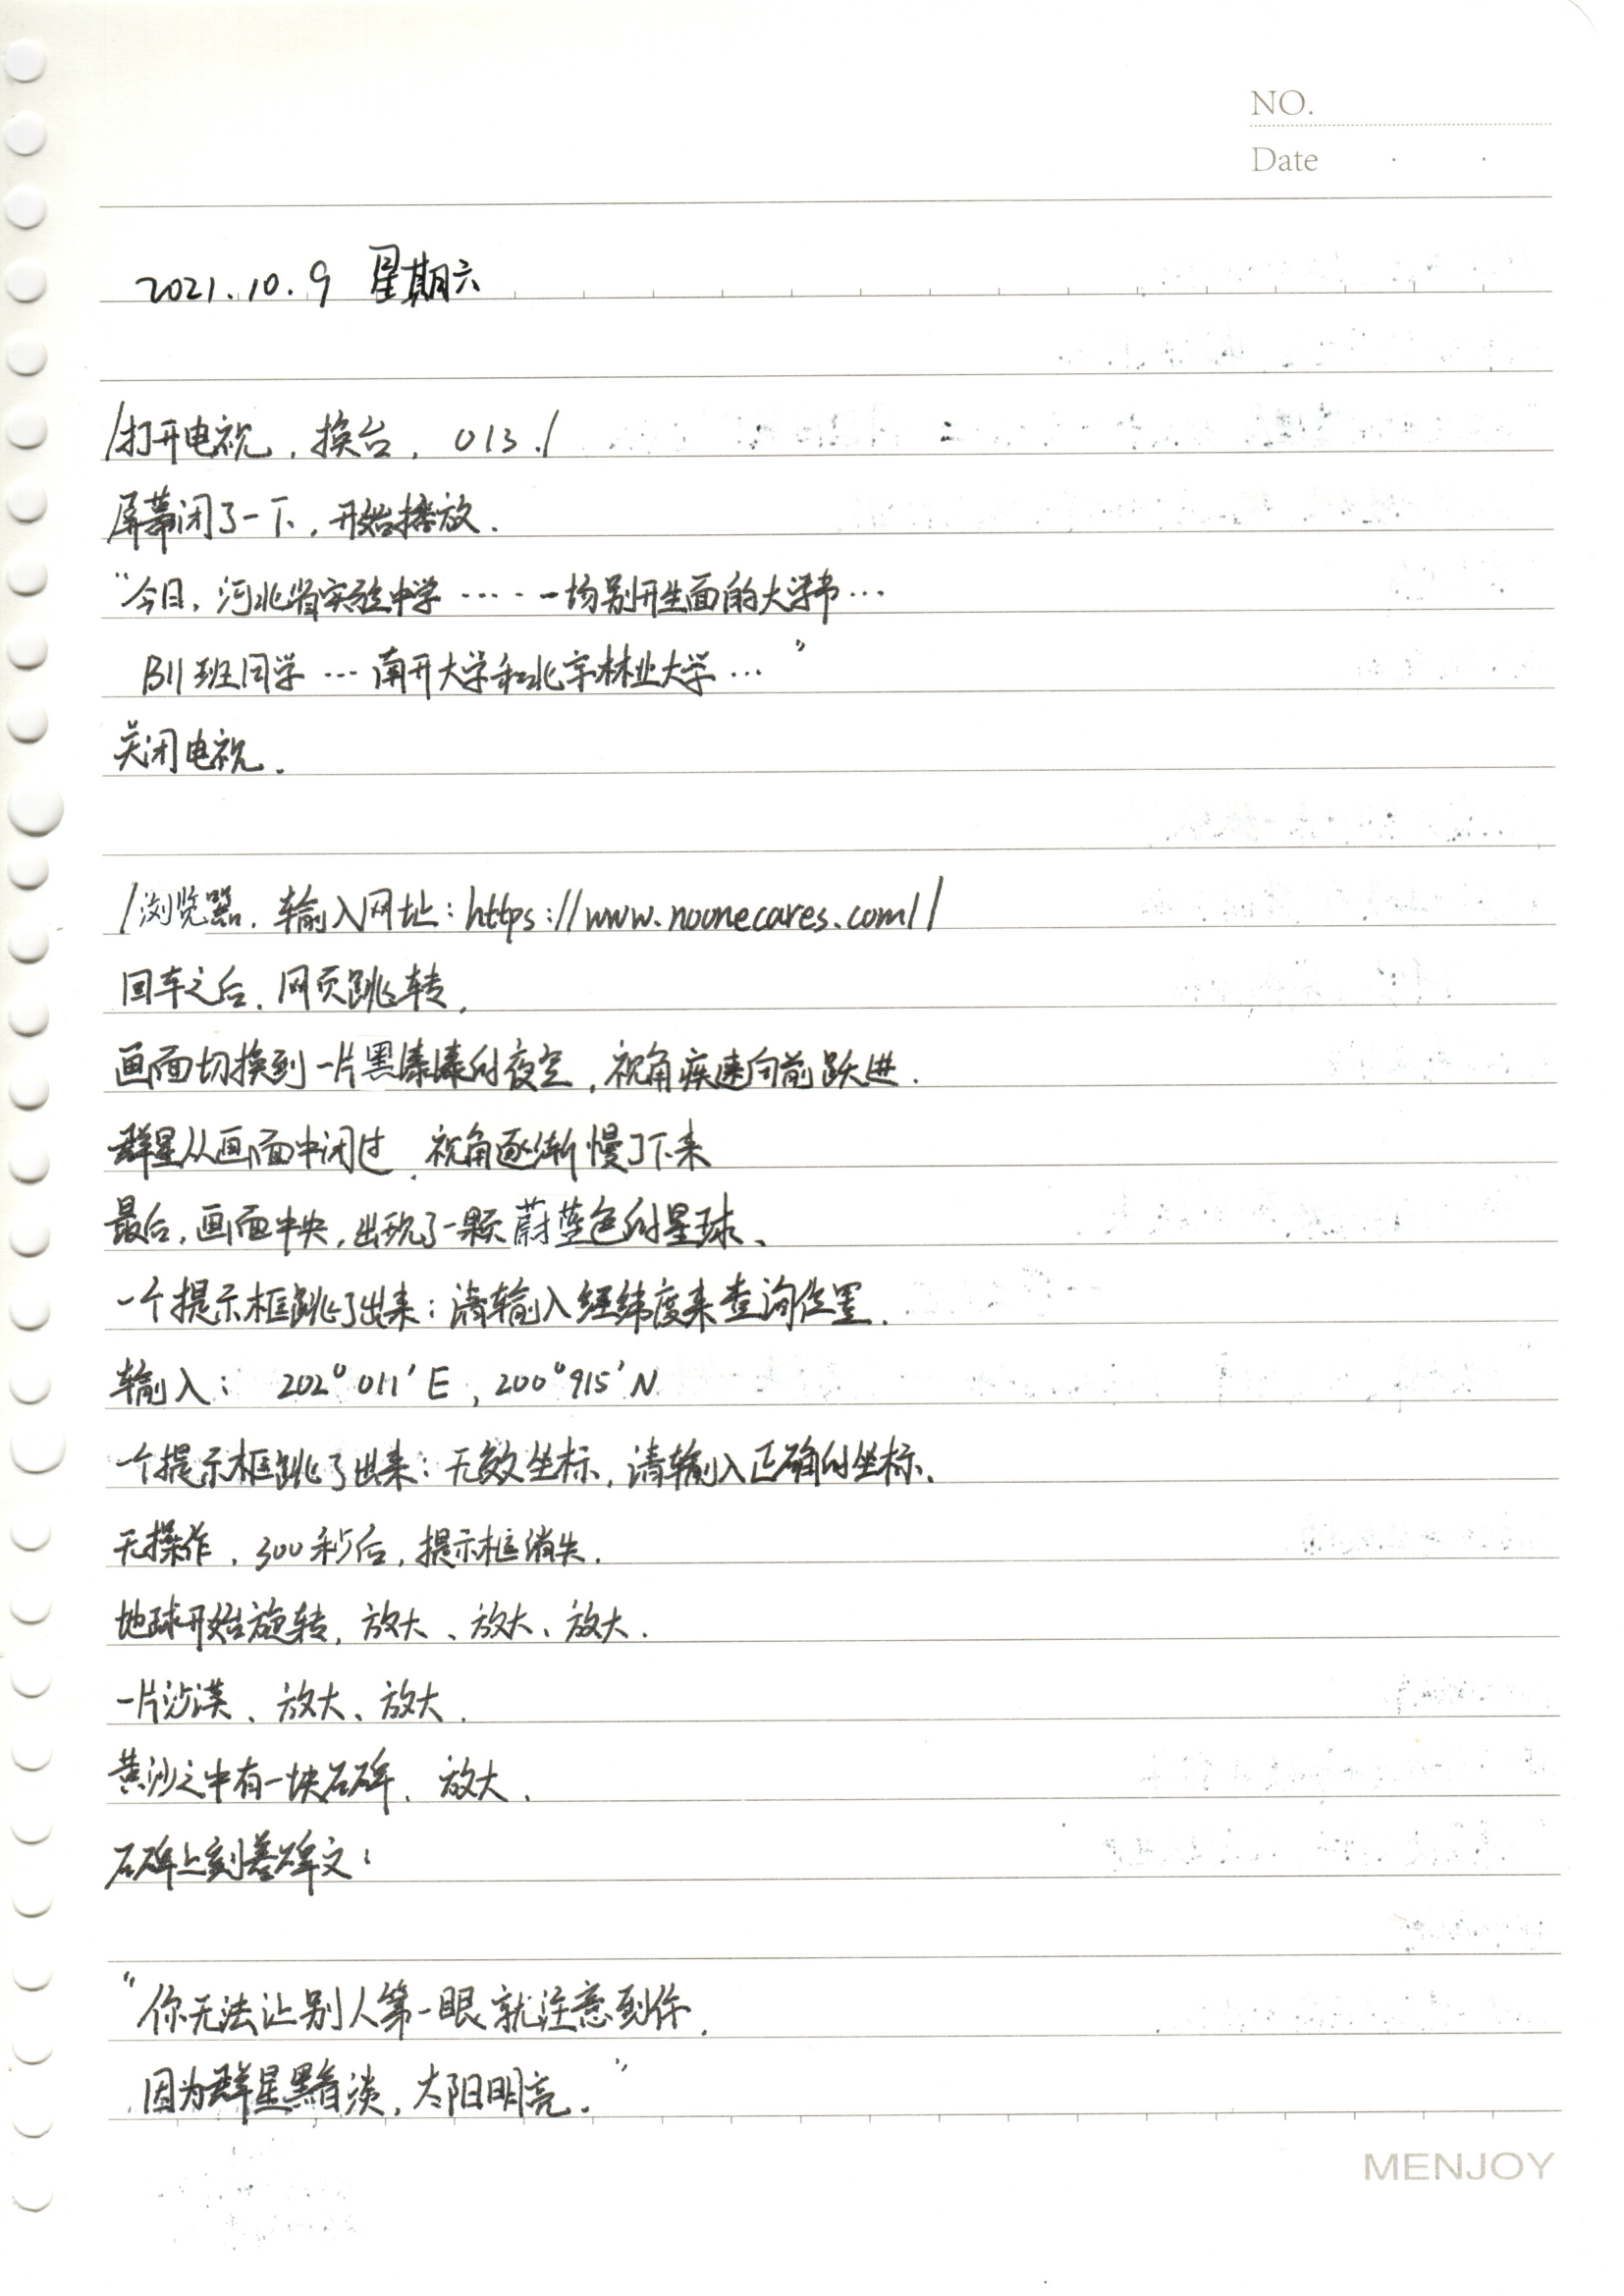 NO.
Date
2021.10.9 星期六
/打开电视，换台，013./
屏幕闪了一下，开始播放.
"今日，河北省实验中学……一场别开生面的大学书…
B11班同学…南开大学和北京林业大学…"
关闭电视.
/浏览器，输入网址：https://www.noonecares.com//
回车之后，网页跳转，
画面切换到一片黑漆漆的夜空，视角疾速向前跃进.
群星从画面中闪过，视角逐渐慢了下来
最后，画面中央，出现了一颗蔚蓝色的星球、
一个提示框跳了出来：请输入经纬度来查询位置.
输入： 202°011'E，200°915'N
一个提示框跳了出来：无效坐标，请输入正确的坐标.
无操作，300秒后，提示框消失.
地球开始旋转，放大、放大、放大.
一片沙漠、放大、放大.
黄沙之中有一块石碑、放大.
石碑上刻着碑文：
"你无法让别人第一眼就注意到你.
因为群星黯淡，太阳明亮."
MENJOY